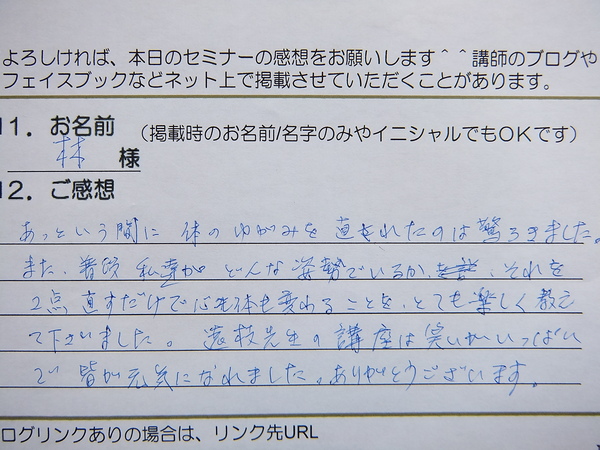 よろしければ、本日のセミナーの感想をお願いします^^講師のブログや
フェイスブックなどネット上で掲載させていただくことがあります。
11. お名前 (掲載時のお名前/名字のみやイニシャルでもOKです)
林 様
12. ご感想
あっという間に 体のゆがみを 直されたのは驚ろきました。
また、普段 私達が どんな姿勢でいるか、それを
2点 直すだけで心も体も変わることを、とても楽しく教え
て下さいました。 先生の講座は笑いがいっぱい
で 皆が元気になれました。ありがとうございます。
ログリンクありの場合は、リンク先URL